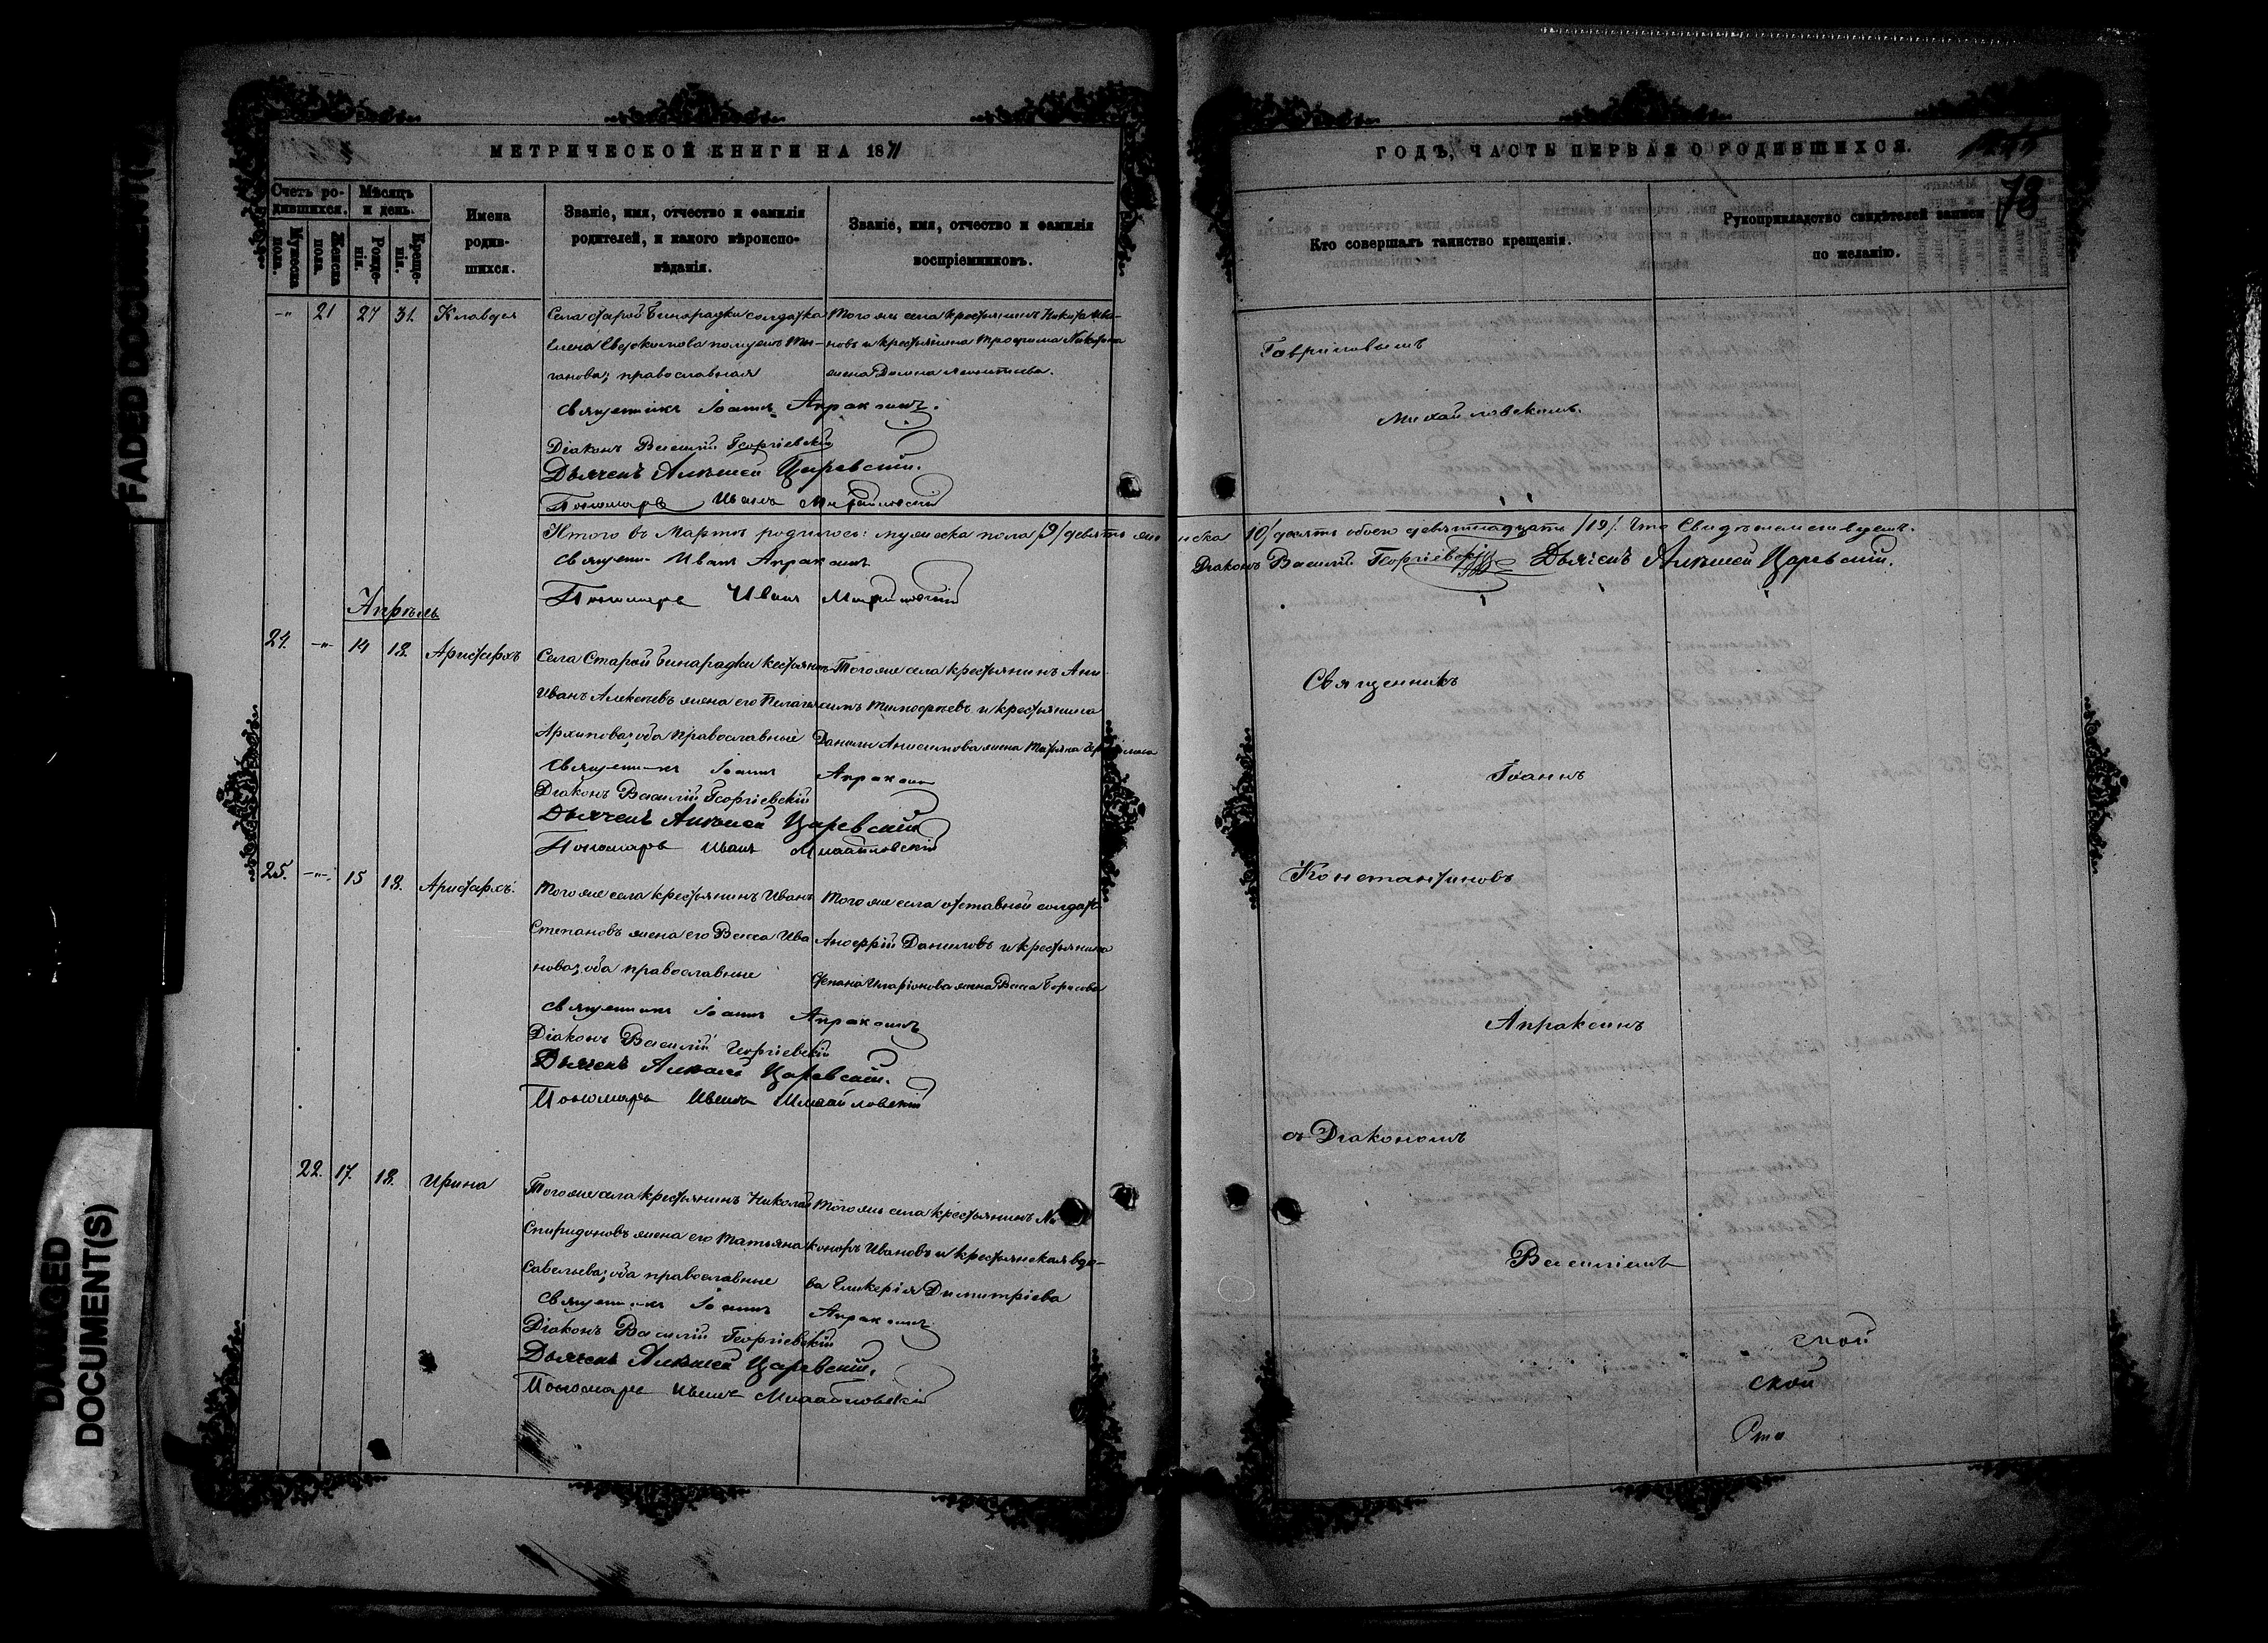 FADED DOCUMENT(
DAMAGED
DOCUMENT(S)
МЕТРИЧЕСКОЙ КНИГИ НА 1871
Счетъ родившихся.
Мѣсяцъ и день.
Мужеска пола.
Женска пола.
Рожденія.
Крещенія.
Имена родившихся.
Званіе, имя, отчество и фамилія
родителей, и какого вѣроиспо-
вѣданія.
Званіе, имя, отчество и фамилія
воспріемниковъ.
-"- 21 27 31. Клавдія
Села Старой Бинарадки солдатка
Елена
православная
Того же села крестьянинъ Никита Ива-
новъ и крестьянина Трофима
жена Домна Леонтьева.
Священникъ Іоаннъ Апраксинъ.
Діаконъ Василій Георгіевскій
Дьячекъ Алексей Царевскій.
Пономарь Иванъ Михайловскій
Итого въ Мартѣ родилось: мужеска пола /9/ девять женска 10/ десять обоего девятнадцать /19/. Что Свидѣтельствуемъ.
Священ. Иванъ Апраксинъ
Діаконъ Василій Георгіевскій Дьячекъ Алексей Царевскій.
Пономарь Иванъ Михайловскій
Апрѣль
24. -"- 14 18. Аристархъ
Села Старой Бинарадки
Иванъ Алексѣевъ жена его Пелагея
Архипова; оба православные
Того же села крестьянинъ Ани-
симъ Тимофеевъ и крестьянина
Данилы Анисимова жена Татьяна
Священникъ Іоаннъ Апраксинъ
Діаконъ Василій Георгіевскій
Дьячекъ Алексей Царевскій
Пономарь Иванъ Михайловскій
25. -"- 15 18. Аристархъ.
Того же села крестьянинъ Иванъ
Степановъ жена его Васса Ива
нова; оба православные
Того же села отставной солдатъ
Данилов и крестьянина
Степана Иларіонова жена Васса Борисова
Священникъ Іоаннъ Апраксинъ
Діаконъ Василій Георгіевскій
Дьячекъ Алексей Царевскій.
Пономарь Иванъ Михайловскій
22. 17. 18. Ирина
Того же села крестьянинъ Николай
Спиридоновъ жена его Татьяна
Савельева; оба православные
Того же села крестьянинъ Ни
коноръ Ивановъ и крестьянская вдо-
ва Гликерія Димитріева
Священникъ Іоаннъ Апраксинъ
Діаконъ Василій Георгіевскій
Дьячекъ Алексей Царевскій.
Пономарь Иванъ Михайловскій
ГОДЪ, ЧАСТЬ ПЕРВАЯ О РОДИВШИХСЯ.
78
Кто совершалъ таинство крещенія.
Рукоприкладство свидѣтелей записи
по желанію.
Гавриловымъ
Михайловскимъ.
Священникъ
Іоаннъ
Константиновъ
Апраксинъ
съ Діакономъ
Василіемъ